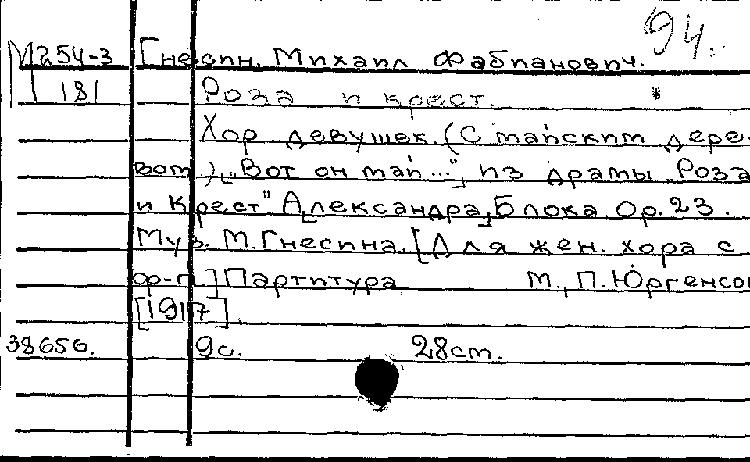 94.
М254-3 Гнесин, Михаил Фабианович.
181 Роза и крест. *
Хор девушек. (С майским дере-
вом), „Вот он май...", из драмы „Роза
и Крест" А[лександра] Блока Ор. 23.
Муз. М. Гнесина. [Для жен. хора с
ф-п.] Партитура М., П. Юргенсон
[1917].
38656. 9с. 28см.